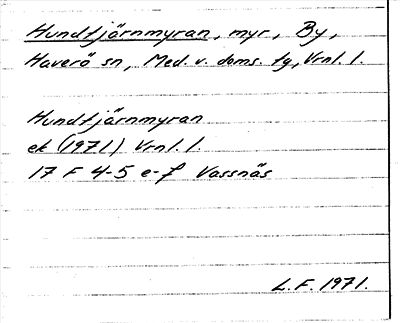 Hundtjärnmyran, myr, By,
Haverö sn, Med. v. doms. tg, Vrnl. l.
Hundtjärnmyran
ek (1971) Vrnl. l.
17 F 4-5 e-f Vassnäs
L.F. 1971.